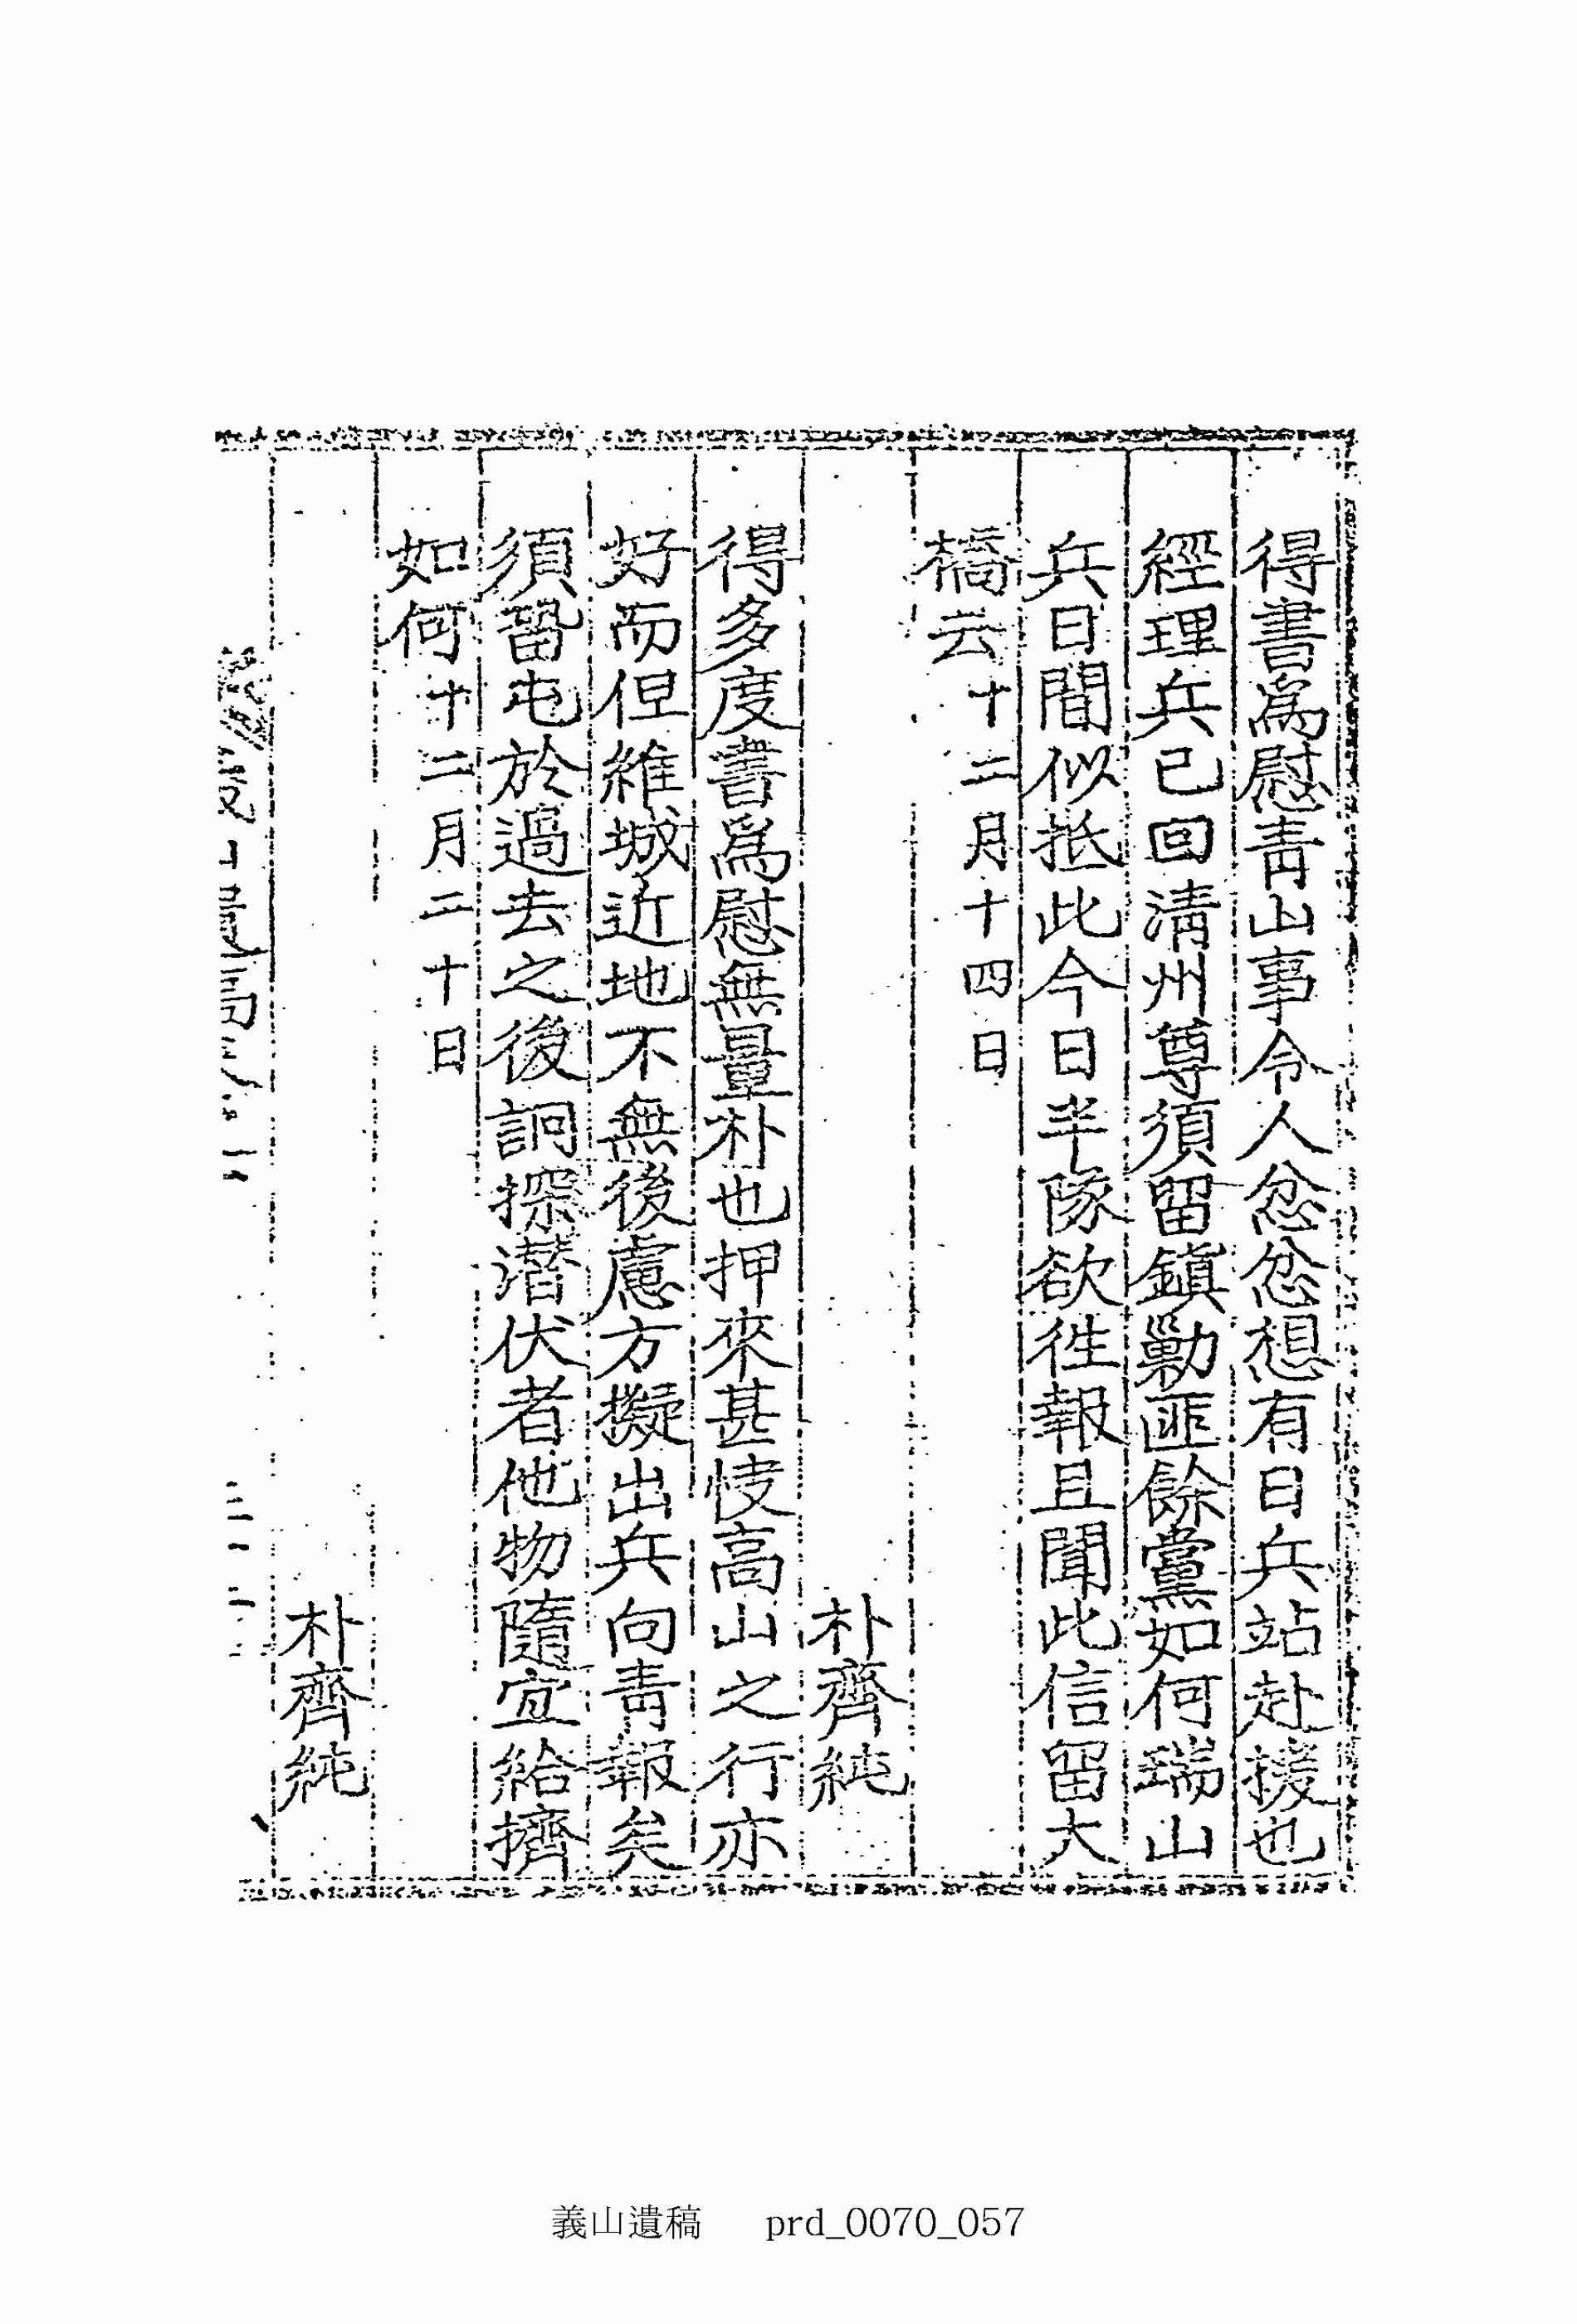 得書爲慰靑山事令人忿忿想有日兵站赴援也
經理兵已回淸州尊須留鎭勦匪餘黨如何瑞山
兵日間似抵此今日半隊欲徃報且聞此信留大
橋云十二月十四日
朴齊純
得多度書爲慰無量朴也押來甚快高山之行亦
好而但維城近地不無後慮方擬出兵向靑報矣
須留屯於過去之後詗探潛伏者他物隨宜給擠
如何十二月二十日
朴齊純
義山遺稿 prd_0070_057